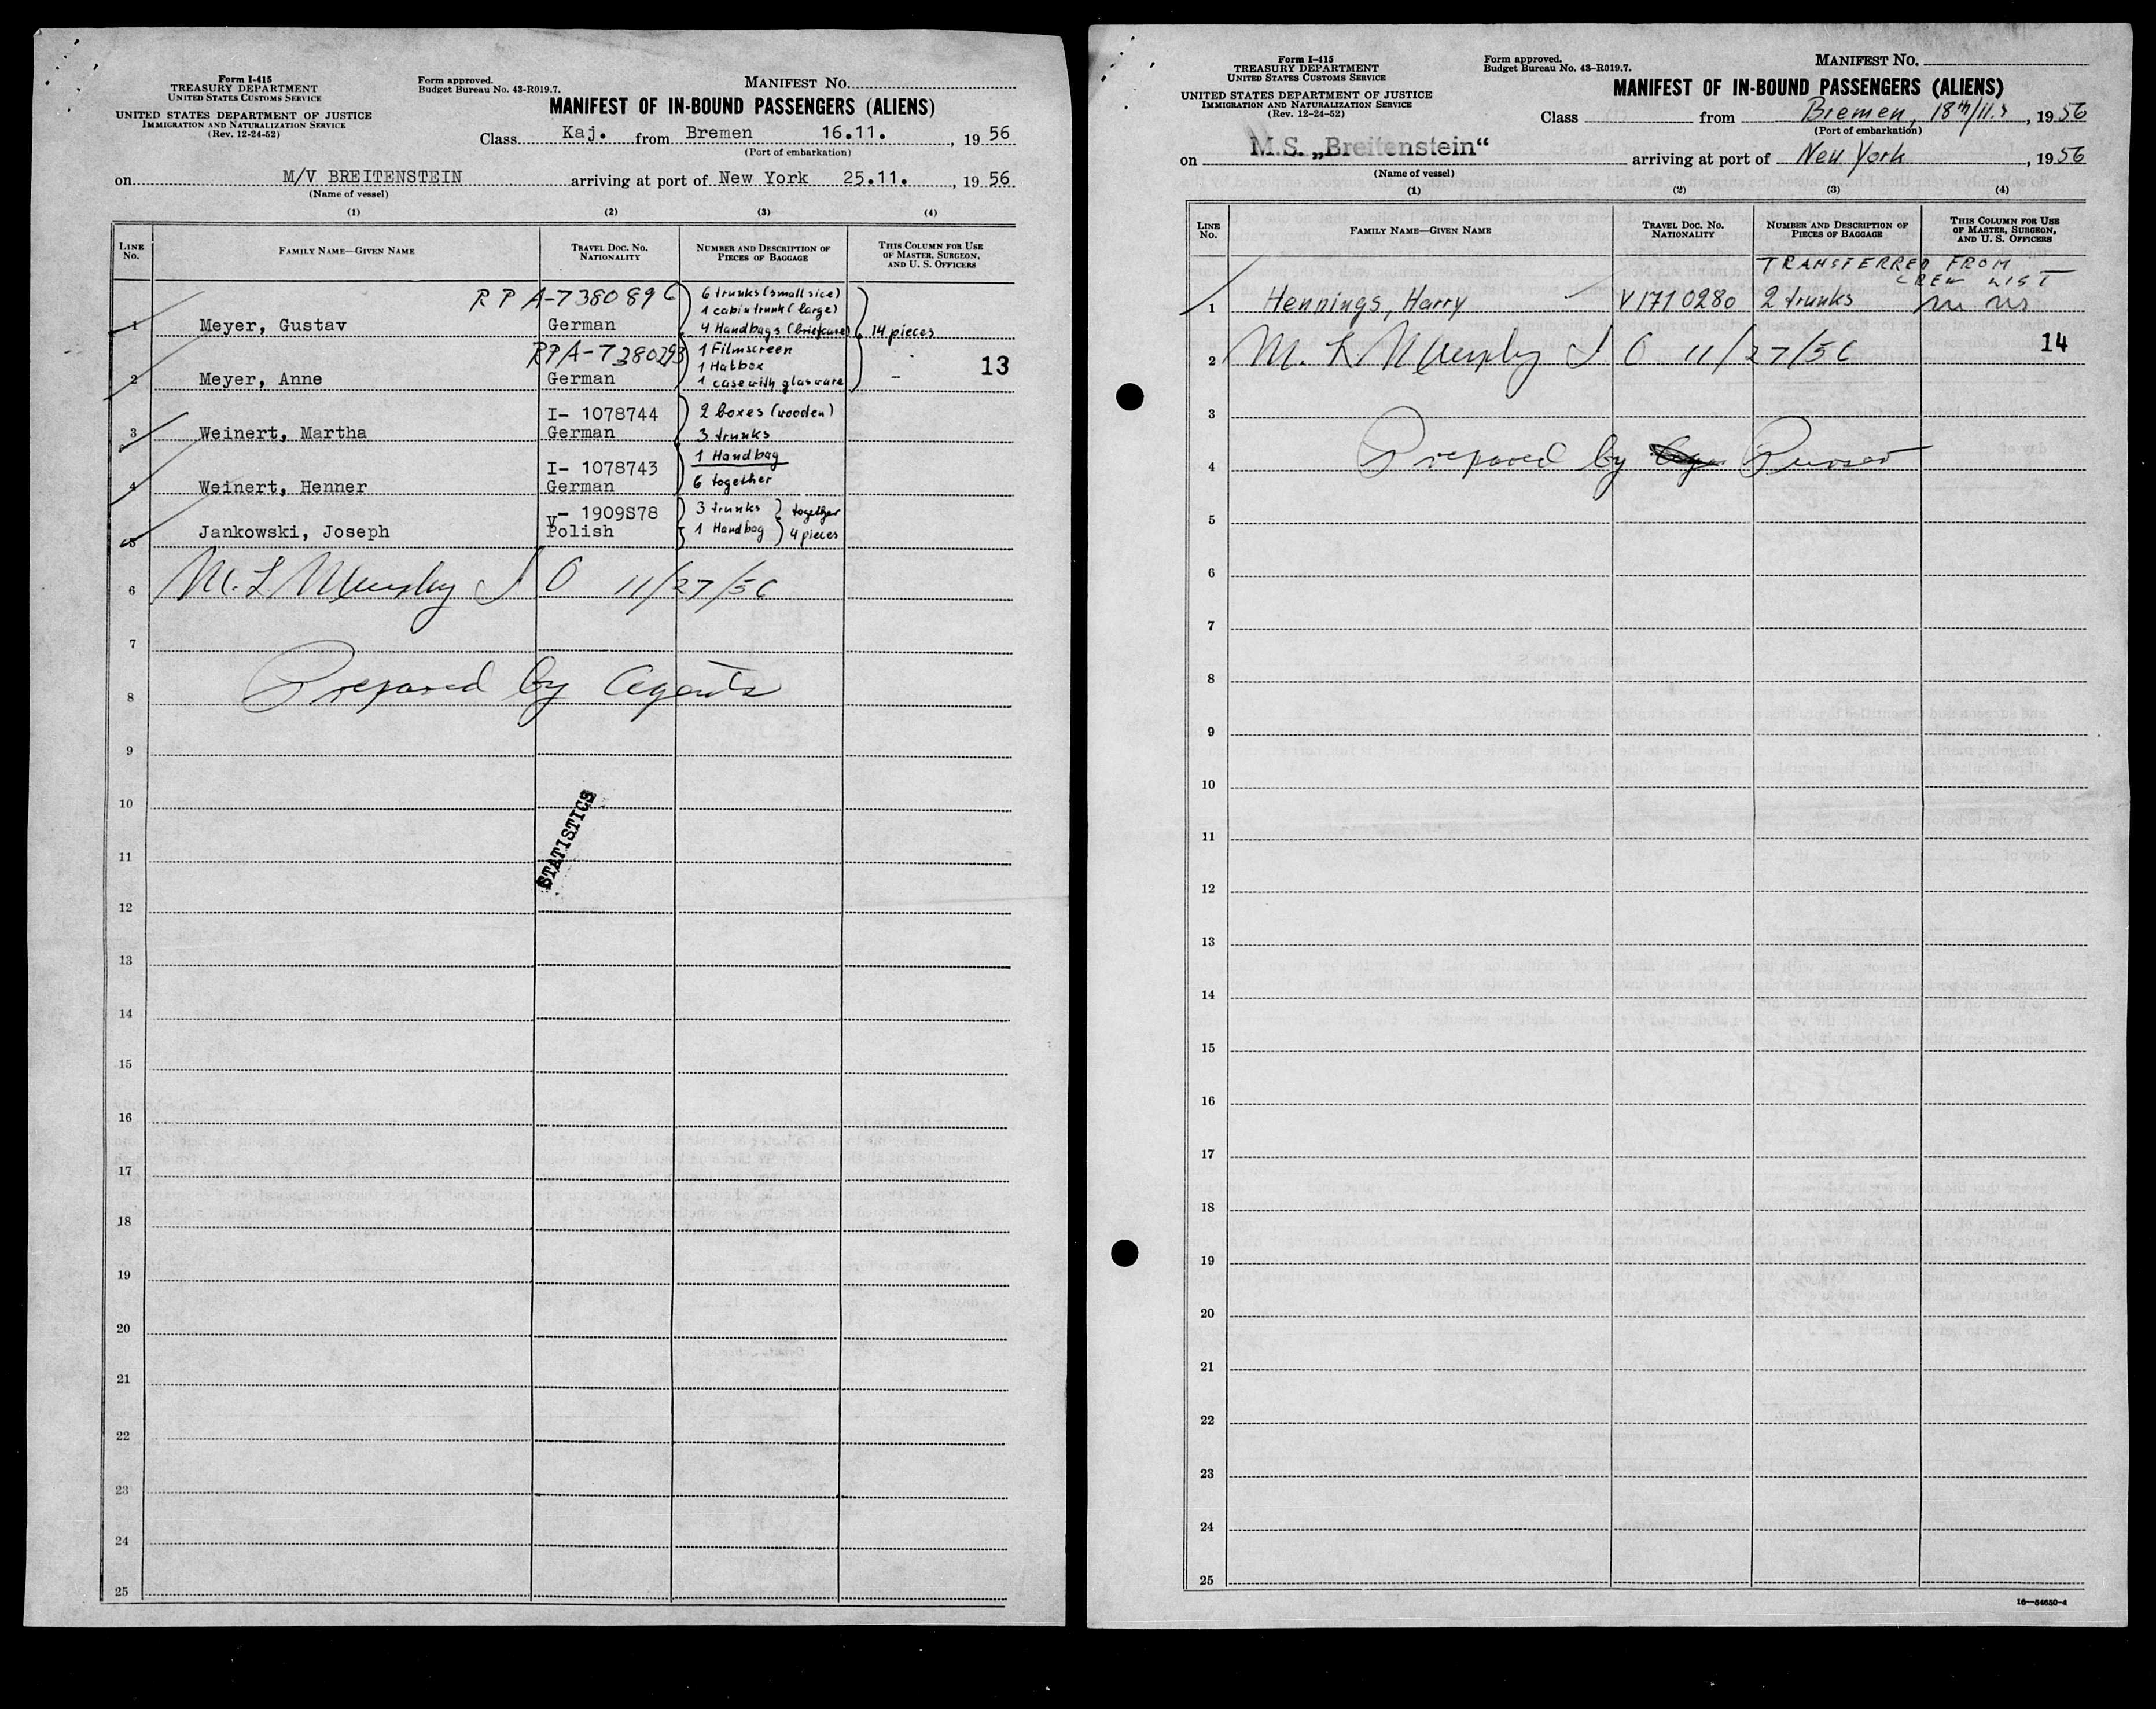 Form I-415
TREASURY DEPARTMENT
UNITED STATES CUSTOMS SERVICE
UNITED STATES DEPARTMENT OF JUSTICE
IMMIGRATION AND NATURALIZATION SERVICE
(Rev. 12-24-52)
Form approved.
Budget Bureau No. 43-R019.7.
MANIFEST No.
MANIFEST OF IN-BOUND PASSENGERS (ALIENS)
Class Kaj. from Bremen 16.11. , 19 56
(Port of embarkation)
on M/V BREITENSTEIN arriving at port of New York 25.11. , 19 56
(Name of vessel)
(1) (2) (3) (4)
LINE No. FAMILY NAME—GIVEN NAME TRAVEL DOC. NO. NATIONALITY NUMBER AND DESCRIPTION OF PIECES OF BAGGAGE THIS COLUMN FOR USE OF MASTER, SURGEON, AND U. S. OFFICERS
R P A-7380896 6 trunks (small sice)
1 cabin trunk (large)
1 Meyer, Gustav German 4 Handbags (briefcase) 14 pieces
RPA-7380293 1 Filmscreen
1 Hatbox 13
2 Meyer, Anne German 1 case with glasware -
I- 1078744 2 boxes (wooden)
3 Weinert, Martha German 3 trunks
I- 1078743 1 Handbag
4 Weinert, Henner German 6 together
V- 1909S78 3 trunks together
5 Jankowski, Joseph Polish 1 Handbag 4 pieces
6 M. L. Murphy I O 11/27/56
7
8 Prepared by Agents
9
10
STATISTICS
11
12
13
14
15
16
17
18
19
20
21
22
23
24
25
Form I-415
TREASURY DEPARTMENT
UNITED STATES CUSTOMS SERVICE
UNITED STATES DEPARTMENT OF JUSTICE
IMMIGRATION AND NATURALIZATION SERVICE
(Rev. 12-24-52)
Form approved.
Budget Bureau No. 43-R019.7.
MANIFEST No.
MANIFEST OF IN-BOUND PASSENGERS (ALIENS)
Class from Bremen, 18th/11. , 19 56
(Port of embarkation)
on M.S. „Breitenstein“ arriving at port of New York , 19 56
(Name of vessel)
(1) (2) (3) (4)
LINE No. FAMILY NAME—GIVEN NAME TRAVEL DOC. NO. NATIONALITY NUMBER AND DESCRIPTION OF PIECES OF BAGGAGE THIS COLUMN FOR USE OF MASTER, SURGEON, AND U. S. OFFICERS
TRANSFERRED FROM
CREW LIST
1 Hennings, Harry V1710280 2 trunks
14
2 M. L. Murphy I O 11/27/56
3
4 Prepared by Purser
5
6
7
8
9
10
11
12
13
14
15
16
17
18
19
20
21
22
23
24
25
16—54650-4